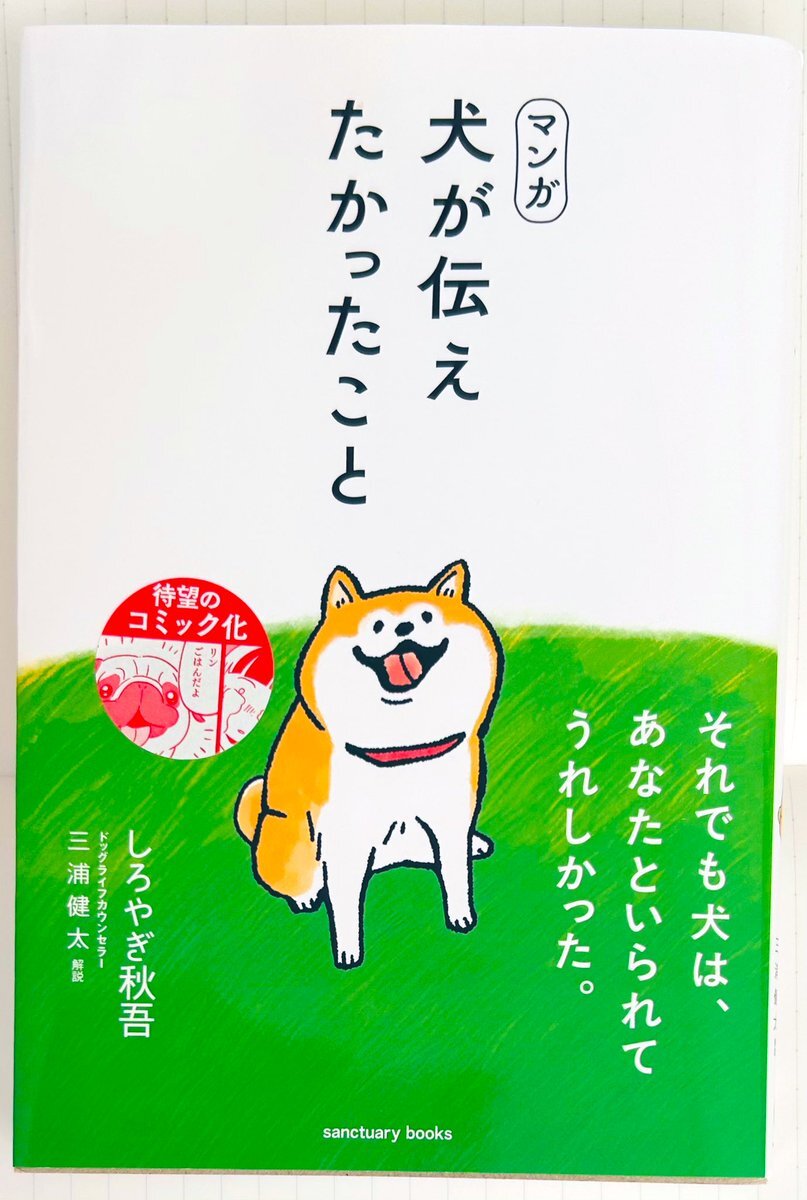 マンガ
犬が伝え
たかったこと
待望の
コミック化
リン
ごはんだよ
それでも犬は、
あなたといられて
うれしかった。
しろやぎ秋吾
ドッグライフカウンセラー
三浦健太 解説
sanctuary books